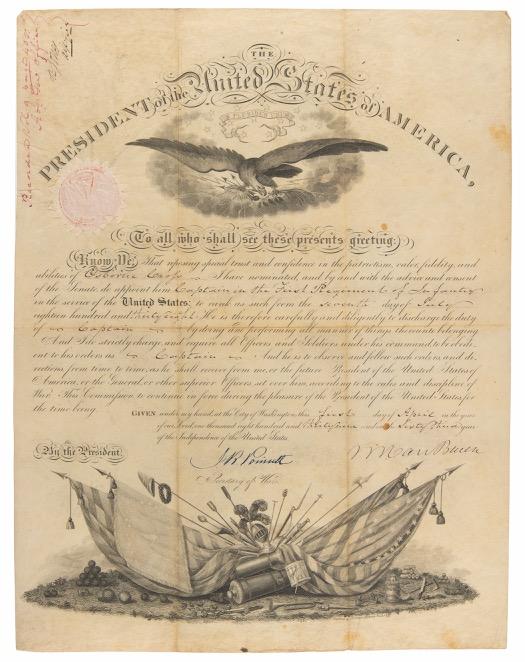 THE
PRESIDENT of the United States of AMERICA,
E PLURIBUS UNUM
To all who shall see these presents greeting:
Know Ye, That reposing special trust and confidence in the patriotism, valor, fidelity, and
abilities of Osborne Cross I have nominated, and by and with the advice and consent
of the Senate do appoint him Captain in the First Regiment of Infantry
in the service of the United States: to rank as such from the seventh day of July
eighteen hundred and thirty eight. He is therefore carefully and diligently to discharge the duty
of Captain by doing and performing all manner of things thereunto belonging.
And I do strictly charge, and require all Officers and Soldiers under his command to be obedi-
ent to his orders as Captain. And he is to observe and follow such orders, and di-
rections from time to time, as he shall receive from me, or the future President of the United States of
America, or the General, or other superior Officers set over him, according to the rules and discipline of
War. This Commission to continue in force during the pleasure of the President of the United States, for
the time being.
GIVEN under my hand, at the City of Washington this first day of April in the year
of our Lord, one thousand eight hundred and thirty nine and in the Sixty third year
of the Independence of the United States.
By the President,
M Van Buren
J R Poinsett
Secretary of War.